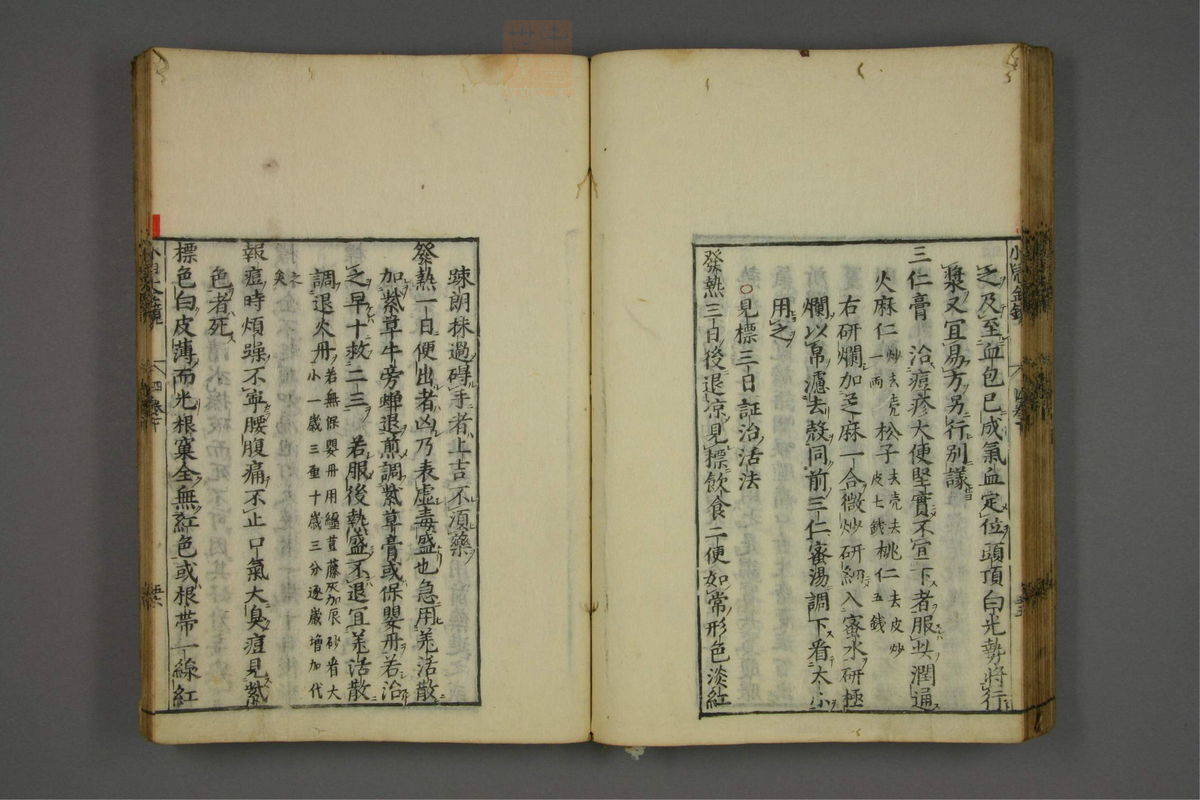 乏及至血包已成氣血定位頭頂白光勢將行
漿又宜易方另行別議
三仁膏 治痘疹大便堅實不宣下者服此潤通
火麻仁一兩炒去壳松子去壳去皮七錢桃仁去皮炒五錢
右研爛加芝麻一合微炒研細入蜜水研極
爛以帛濾去殼同前三仁蜜湯調下看大小
用之
○見標三日証治活法
發熱三日後退凉見標飲食二便如常形色淡紅
踈朗抹過碍手者上吉不湏藥
發熱一日便出者凶乃表虛毒盛也急用羌活散
加紫草牛旁蟬退煎調紫草膏或保嬰丹若治
之早十救二三 若服後熱盛不退宜羌活散
調退火丹若無保嬰丹用纏荳藤灰加辰砂看大小一歲三厘十歲三分逐歲增加代之矣
報痘時煩躁不寧腰腹痛不止口氣大臭痘見紫
色者死
標色白皮薄而光根窠全無紅色或根帶一線紅